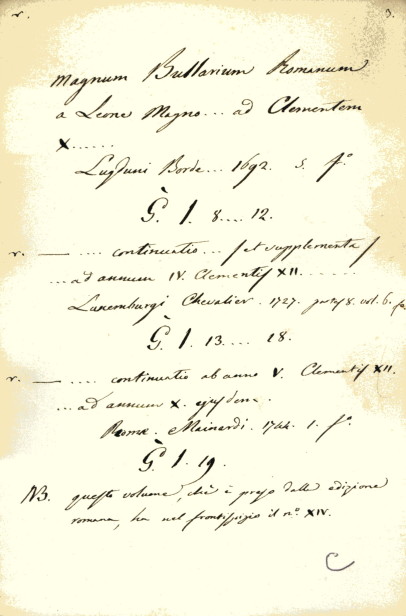 r. 3.
Magnum Bullarium Romanum
a Leone Magno... ad Clementem
X......
Lugduni Borde... 1692. 5. f.º
G. 1. 8.... 12.
r. — .... continuatio... / et supplementa /
... ad annum IV. Clementis XII.......
Luxemburgi Chevalier. 1727. partes 8. vol. 6. fo
G. 1. 13.... 18.
r. — .... continuatio ab anno V. Clementis XII.
... ad annum X. ejusdem.
Romæ. Mainardi. 1744. 1. f.º
G. 1. 19.
NB. questo volume, che è preso dalle edizione
romana, ha nel frontispizio il n.º XIV.
C